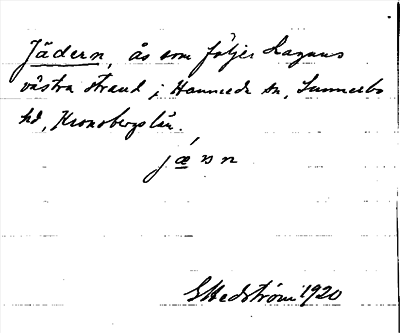 Jädern, ås som följer Lagans
västra strand i Hanneda sn, Sunnerbo
hd, Kronobergs län.
G Hedström 1920